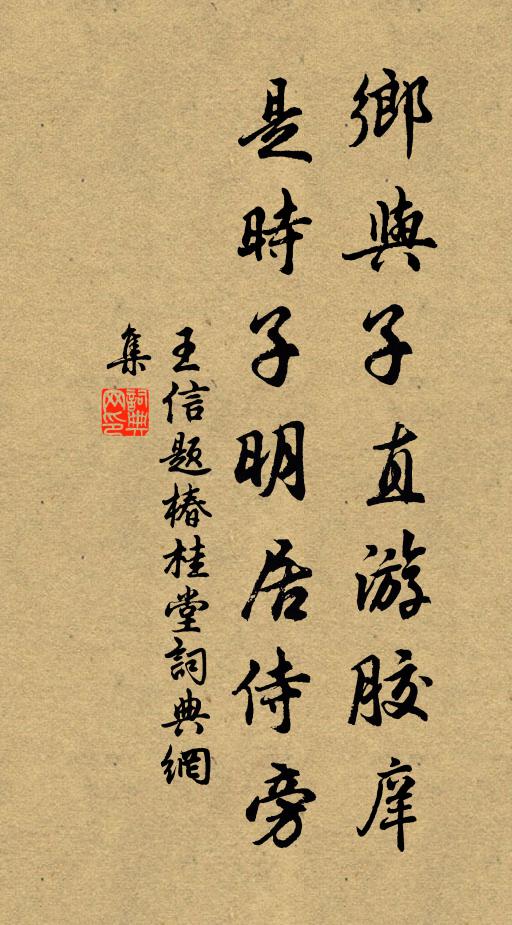 鄉與子直游膠庠
是時子明居侍旁
王信題椿桂堂詞典網
集
詞典
网印